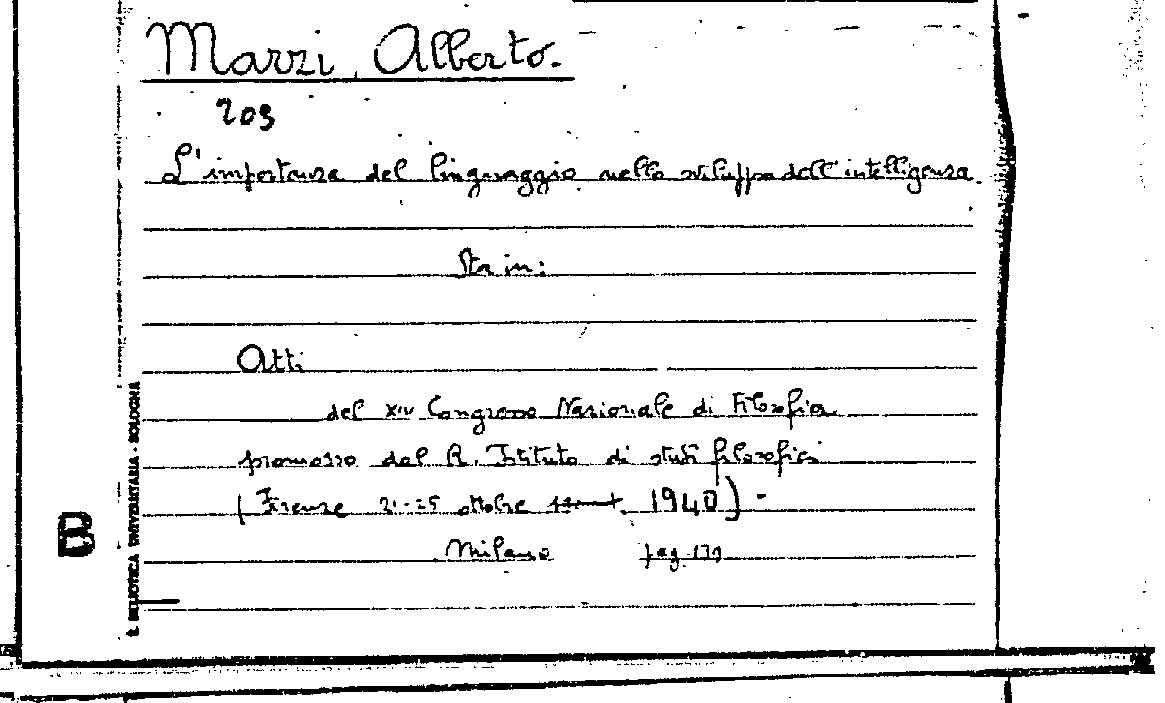 Marzi, Alberto.
203
L'importanza del linguaggio nello sviluppo dell'intelligenza.
Sta in:
Atti
del XIV Congresso Nazionale di Filosofia
promosso dal R. Istituto di studi filosofici
(Firenze 21-25 ottobre 1940) -
Milano pag.
B
R. BIBLIOTECA UNIVERSITARIA - BOLOGNA